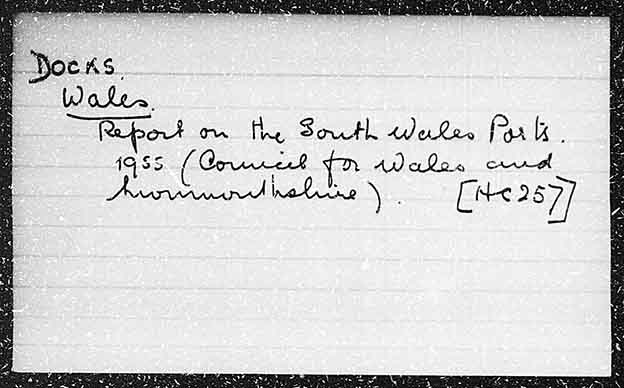 DOCKS.
Wales.
Report on the South Wales Ports.
1955 (Council for Wales and
Monmouthshire). [HC257]